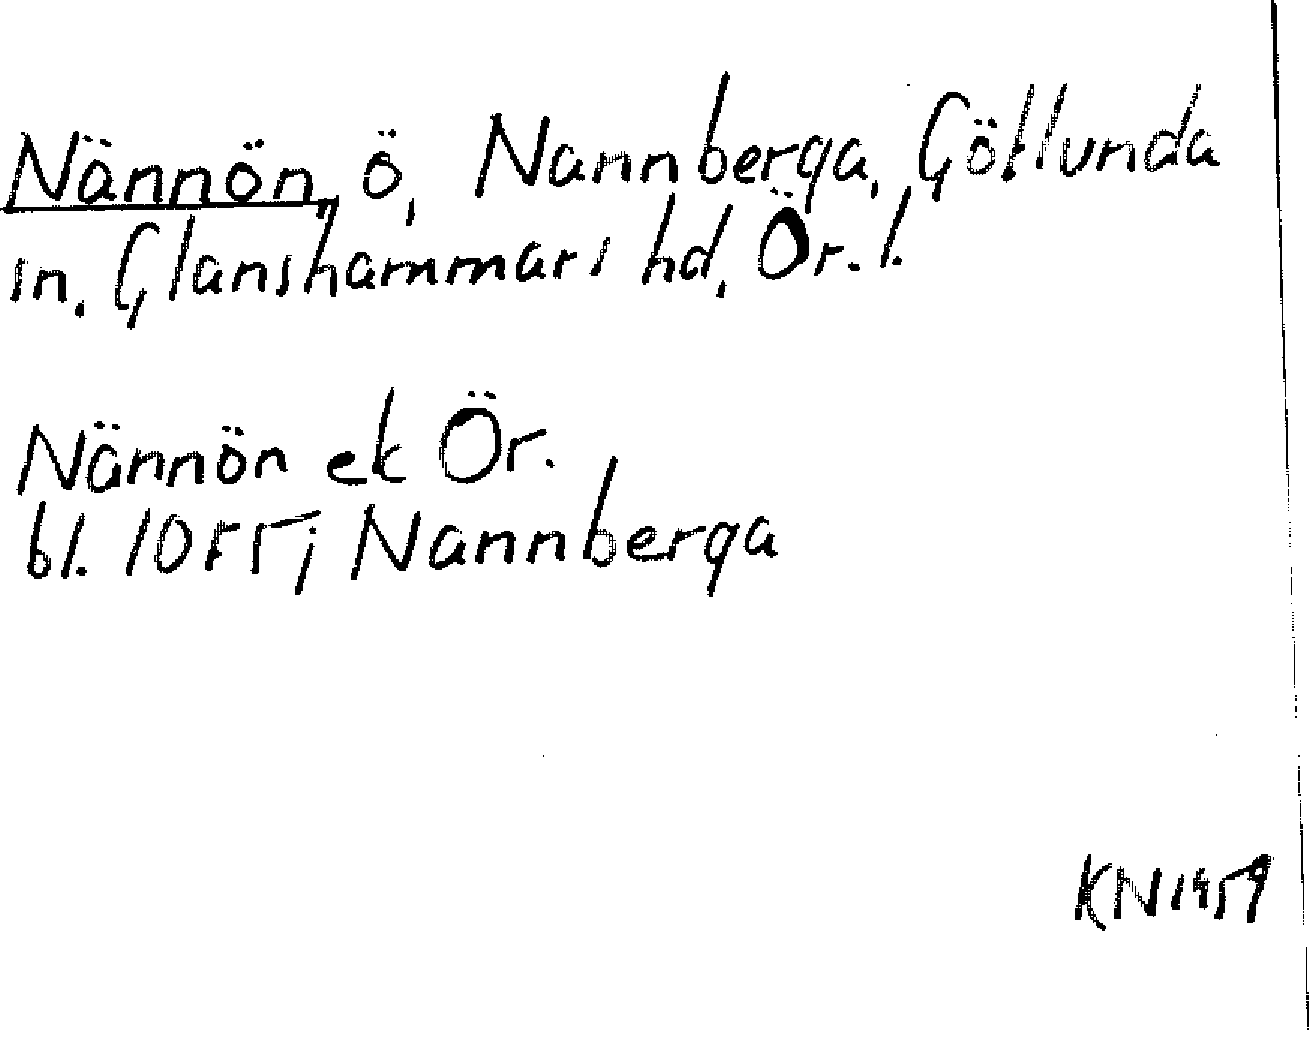 Nännön, ö, Nannberga, Götlunda
sn. Glanshammars hd, Ör. l.
Nännön ek Ör.
bl. 1055; Nannberga
KN 1959